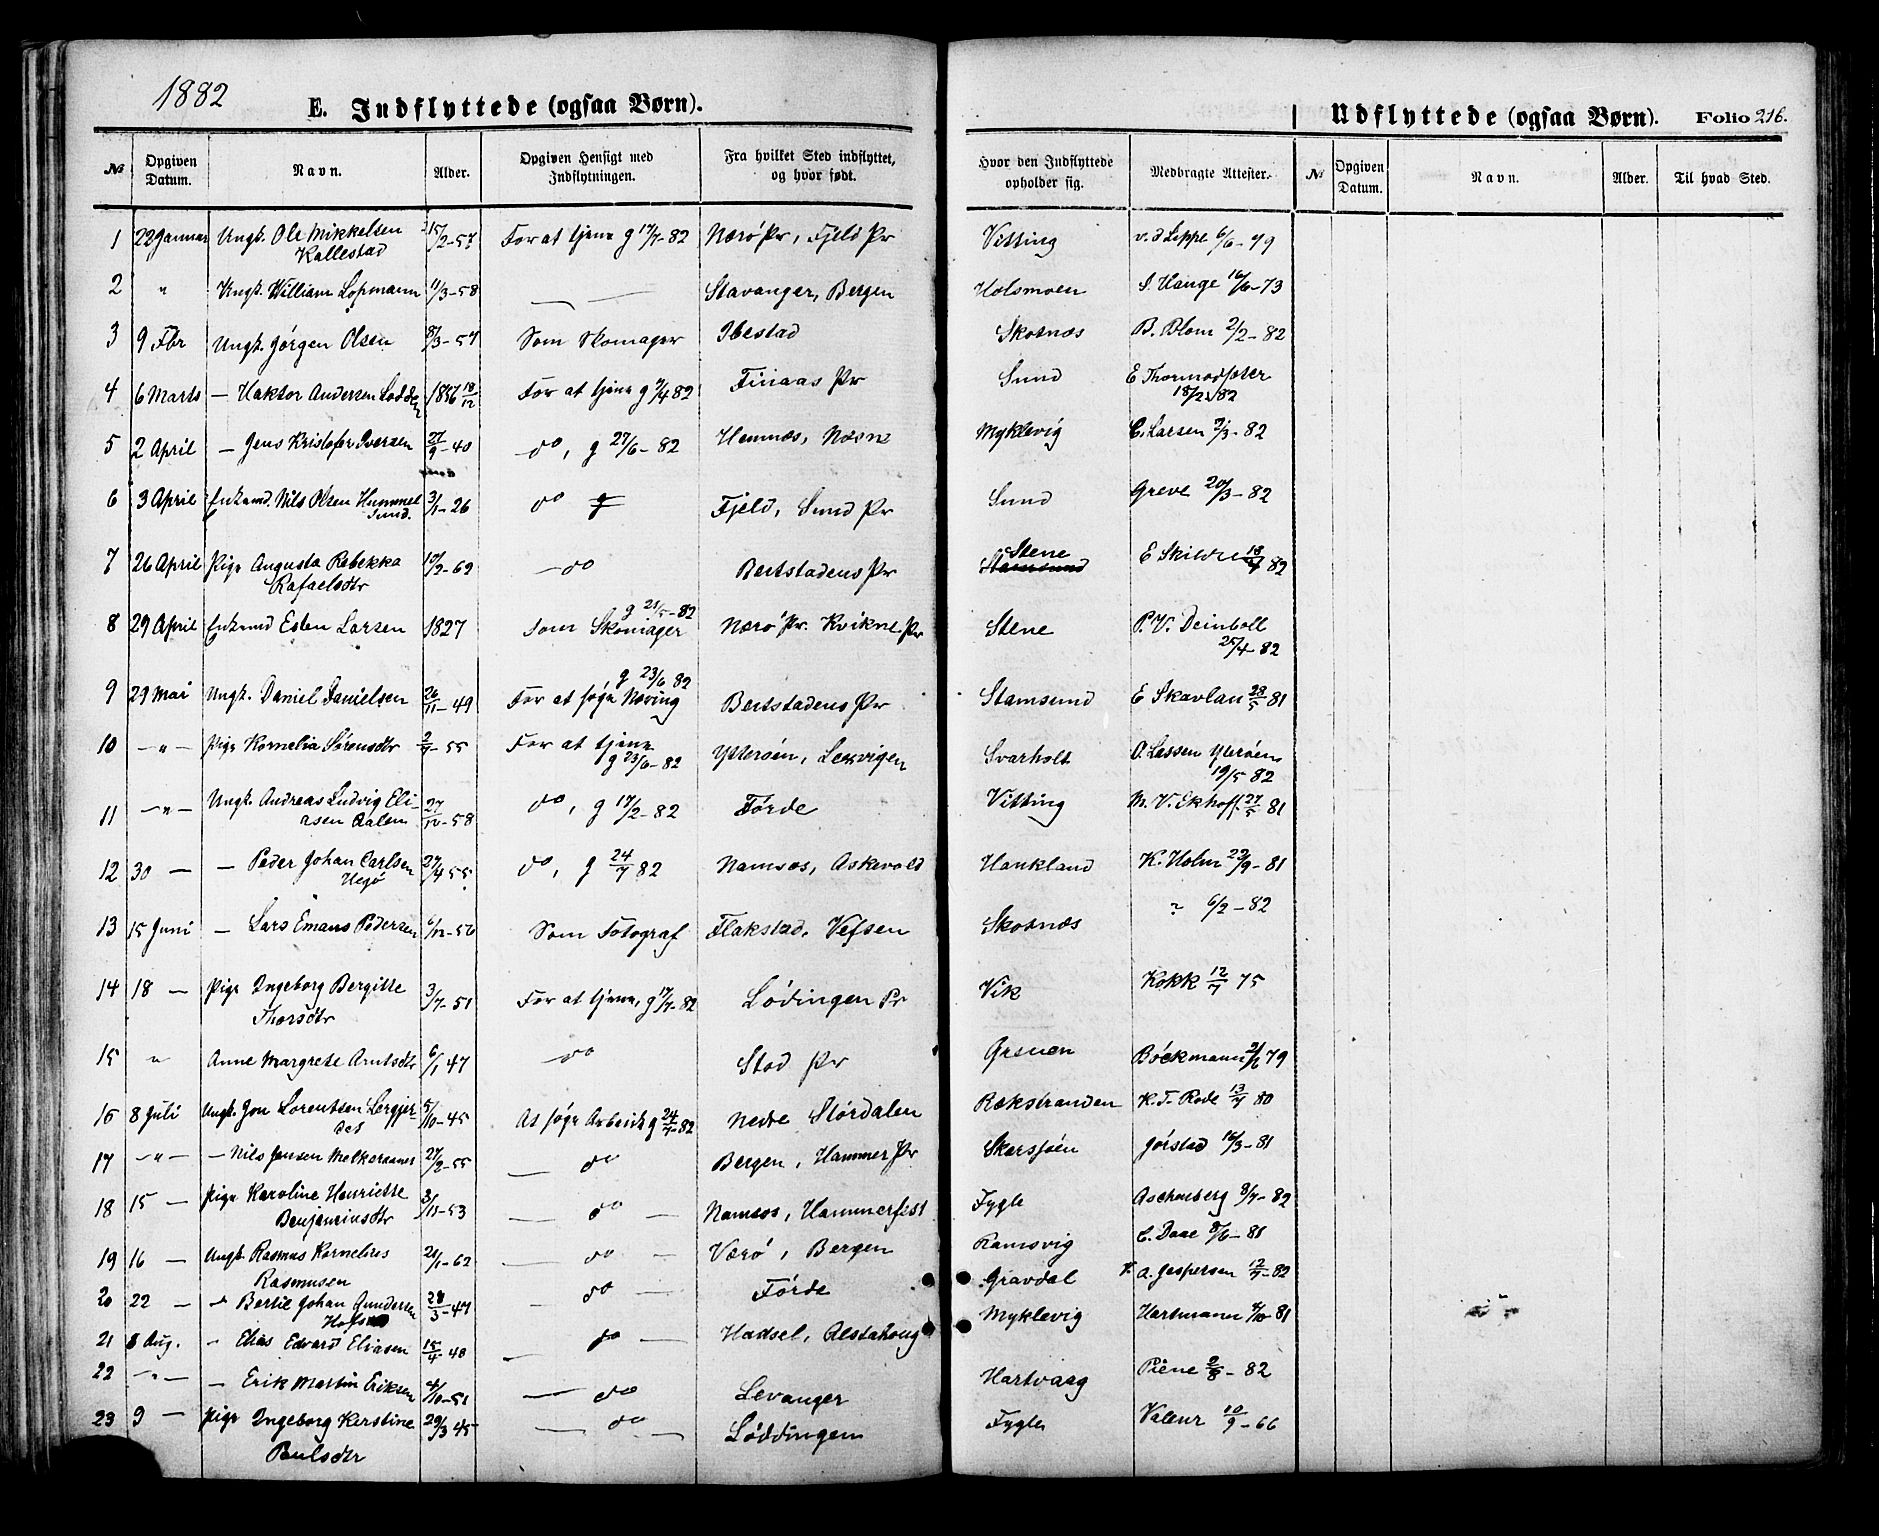 1882
E. Indflyttede (ogsaa Børn).
Udflyttede (ogsaa Børn). Folio 216.
№ Opgiven Datum. Navn. Alder. Opgiven Hensigt med Indflytningen. Fra hvilket Sted indflyttet, og hvor født. Hvor den Indflyttede opholder sig. Medbragte Attester. № Opgiven Datum. Navn. Alder. Til hvad Sted.
1 22 Januar Ungk. Ole Mikkelsen Kallestad 15/2-57 For at tjene g 17/7-82 Nærö Pr, Fjeld Pr Vitting v. d Lippe 6/6-79
2 " Ungk. William Lopmann 11/3-58 — — Stavanger, Bergen Holsmoen S. Hauge 16/6-73
3 9 Fbr Ungk. Jörgen Olsen 8/3-57 Som Skomager Ibestad Skotnæs B. Blom 2/2-82
4 6 Marts — Haktor Andersen 1856 18/12 For at tjene g 9/4 82 Finaas Pr Sund E Thormodsæter 18/2 82
5 2 April — Jens Kristofer Iversen 27/9-40 do, g 27/6-82 Hemnæs, Næsne Myklevig C. Larsen 7/3-82
6 3 April Enkemd. Nils Olsen Hummelsund. 3/1-26 do g Fjeld, Sund Pr Sund Greve 20/3-82
7 26 April Pige Augusta Rebekka Rafaelsdtr 10/2-62 — do Bertstadens Pr Stene Stamsund E Skilde 18/4 82
8 29 April Enkemd Esten Larsen 1827 som Skomager g 21/5-82 Nærö Pr. Kvikne Pr Stene P. V. Deinboll 25/4-82
9 29 Mai Ungk. Daniel Danielsen 26/11-49 For at söge Næring g 23/6 82 Bertstadens Pr Stamsund E Skavlan 28/5 81
10 — " — Pige Kornelia Sörensdtr 2/7-55 For at tjene g 23/6-82 Ytterøen, Lexvigen Svarholt A. Lassen Yterøen 19/5 82
11 — " — Ungk. Andreas Ludvig Eliasen 27/12-58 do, g 17/2-82 Førde Vitting M. V. Ekhoff 27/5 81
12 30 — — Peder Johan Carlsen 27/4 55 do, g 24/7 82 Namsos, Askevold Haukland K. Holm 29/9-81
13 15 Juni — Lars Emans Pedersen 6/12-56 Som Fotograf Flakstad, Vefsen Skotnæs " 6/2-82
14 18 — Pige Ingeborg Bergitte Thorsdtr 3/7-51 For at tjene, g 17/7-82 Lödingen Pr Vik Kokk 12/7 75
15 " Anne Margrete Arntsdtr 6/1 47 — do Stod Pr Grenen Böckmann 79
16 8 Juli Ungk. Jon Lorentsen 5/10-45 At söge Arbeide g 24/7-82 Nedre Stördalen Rækstranden K. F. Rode 13/7 80
17 — " — — Nils Jensen 27/2-55 — do Bergen, Hammer Pr Skarsjöen Jörstad 16/3-81
18 15 — Pige Karoline Henriette Benjaminsdtr 3/11-53 — do — Namsos, Hammerfest Fygle Aschenberg 8/7-82
19 16 — Ungk. Rasmus Kornelius Rasmusen 21/1-62 — do — Værö, Bergen Ramsvig C. Daae 8/6-81
20 22 — — Bertil Johan Gundersen 28/3-47 — do — Förde Gravdal A. Jespersen 12/7-82
21 8 Aug. — Elias Edvard Eliasen 15/4-48 — do — Hadsel, Alstahoug Myklevig Hartmann 4/10 81
22 — " — — Erik Martin Eriksen 4/10-51 — do Levanger Hartvaag Piene 2/8-82
23 9 — Pige Ingeborg Kerstine Paulsdtr 29/3 45 — do — Löddingen Fygle Valeur 10/9-66